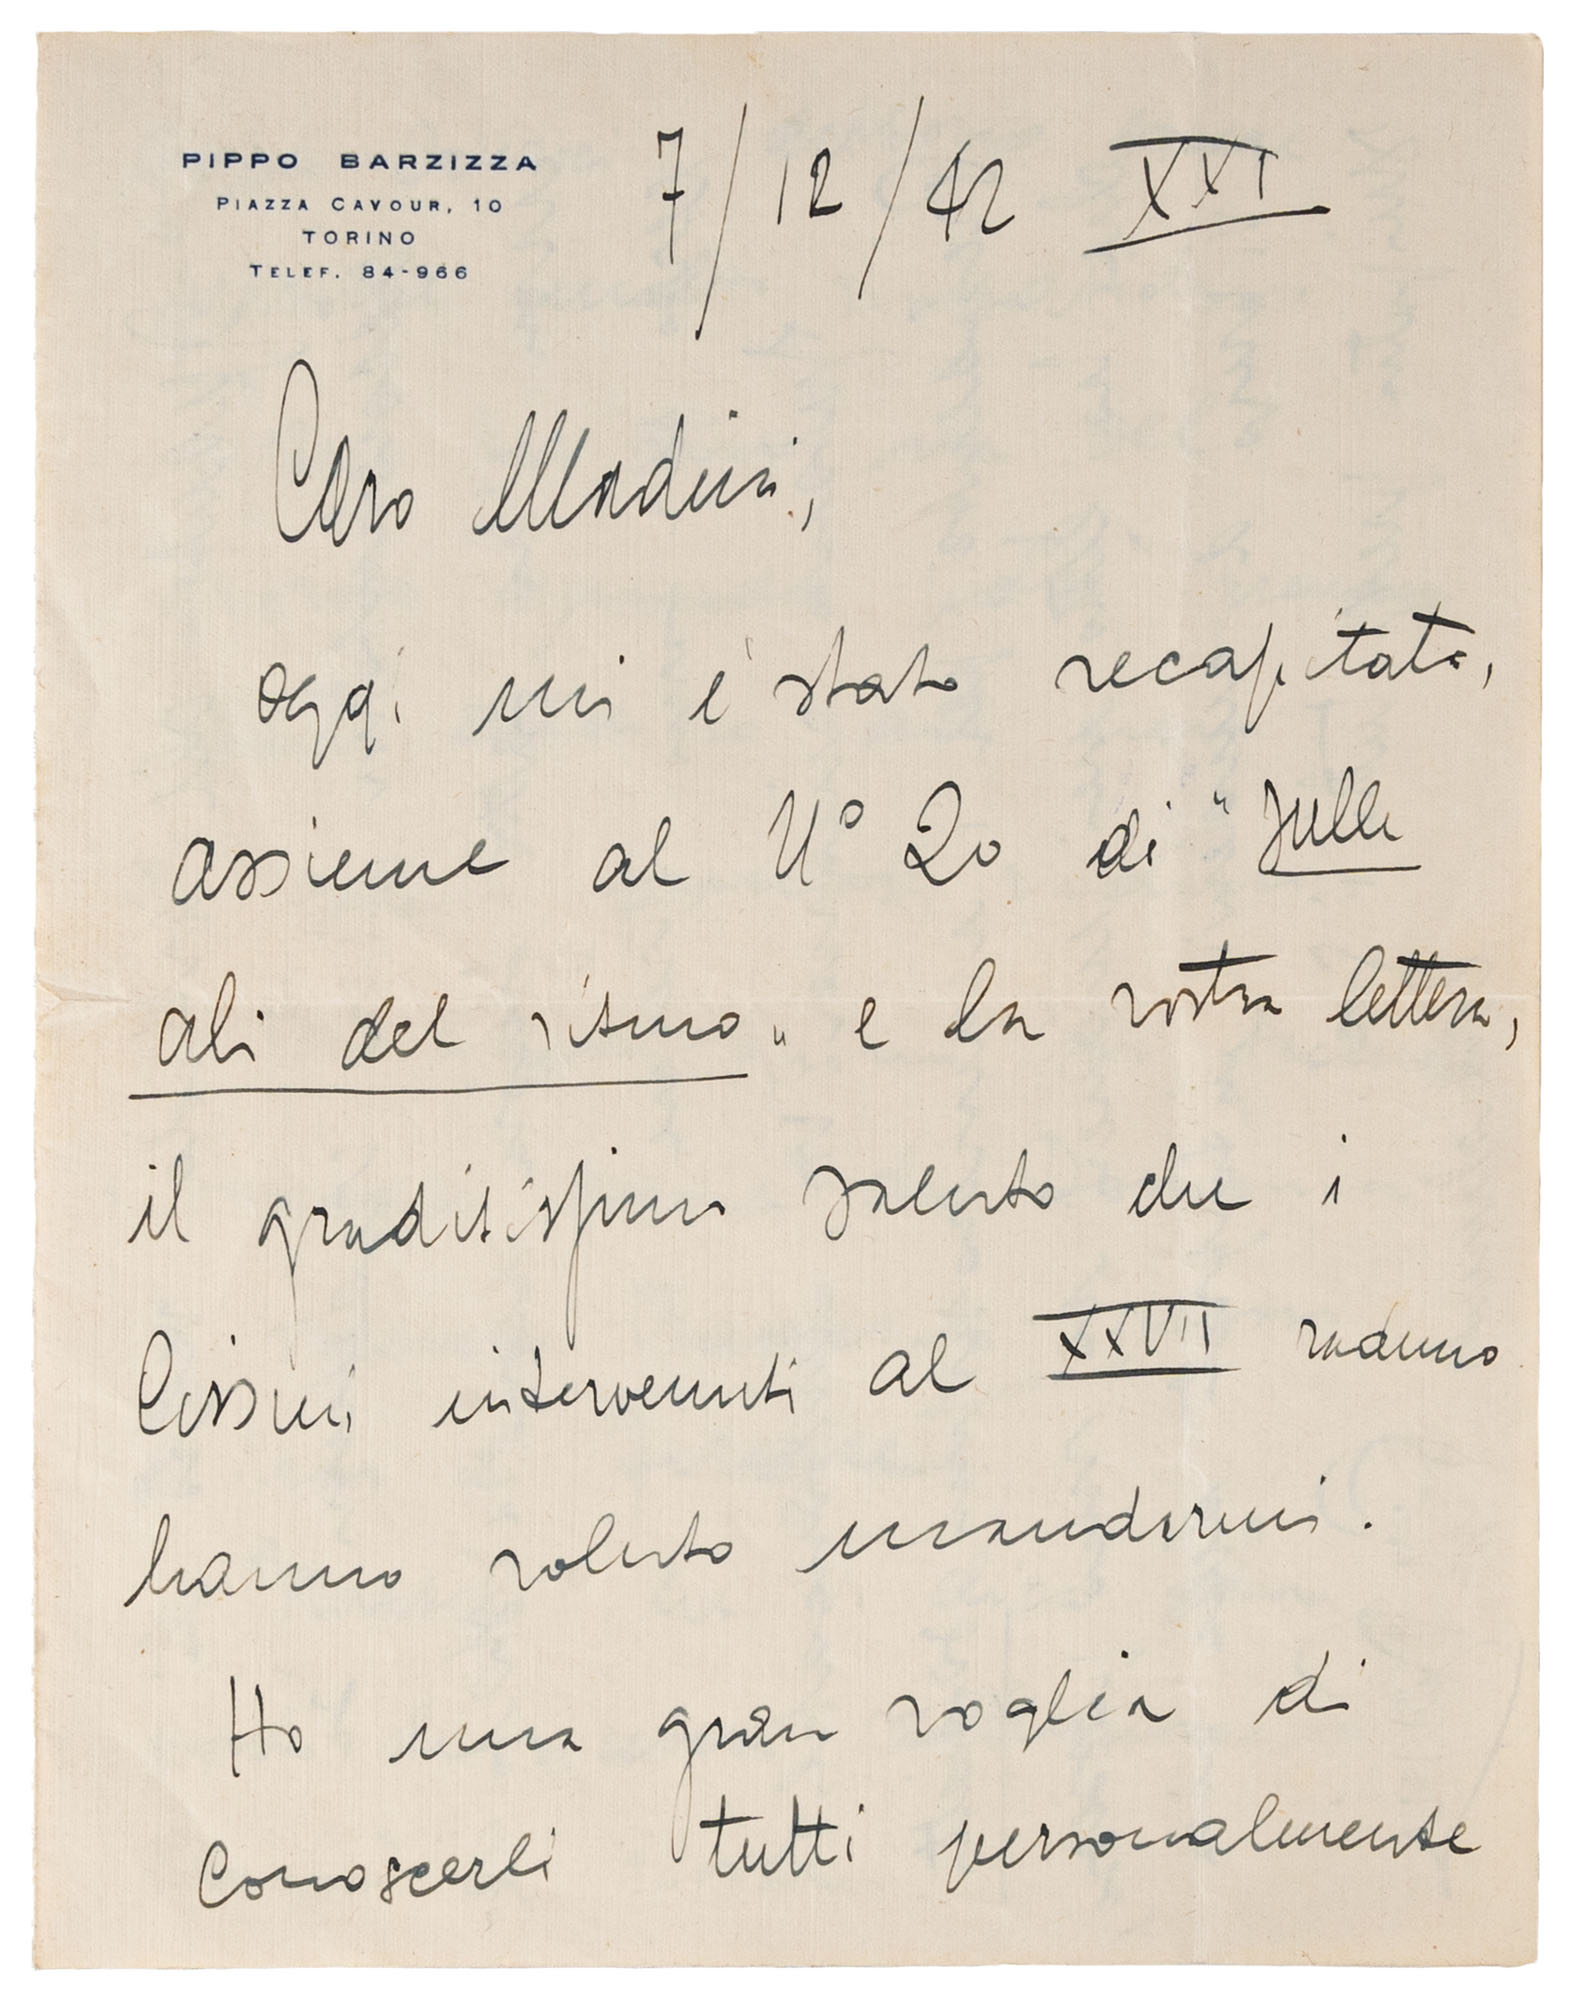 PIPPO BARZIZZA
PIAZZA CAVOUR, 10
TORINO
TELEF. 84-966
7/12/42 XXI
Caro Madini,
oggi mi è stato recapitato,
assieme al N° 20 di "Sulle
ali del ritmo" e la vostra lettera,
il graditissimo saluto che i
Cissini intervenuti al XXVII raduno
hanno voluto mandarmi.
Ho una gran voglia di
conoscerli tutti personalmente